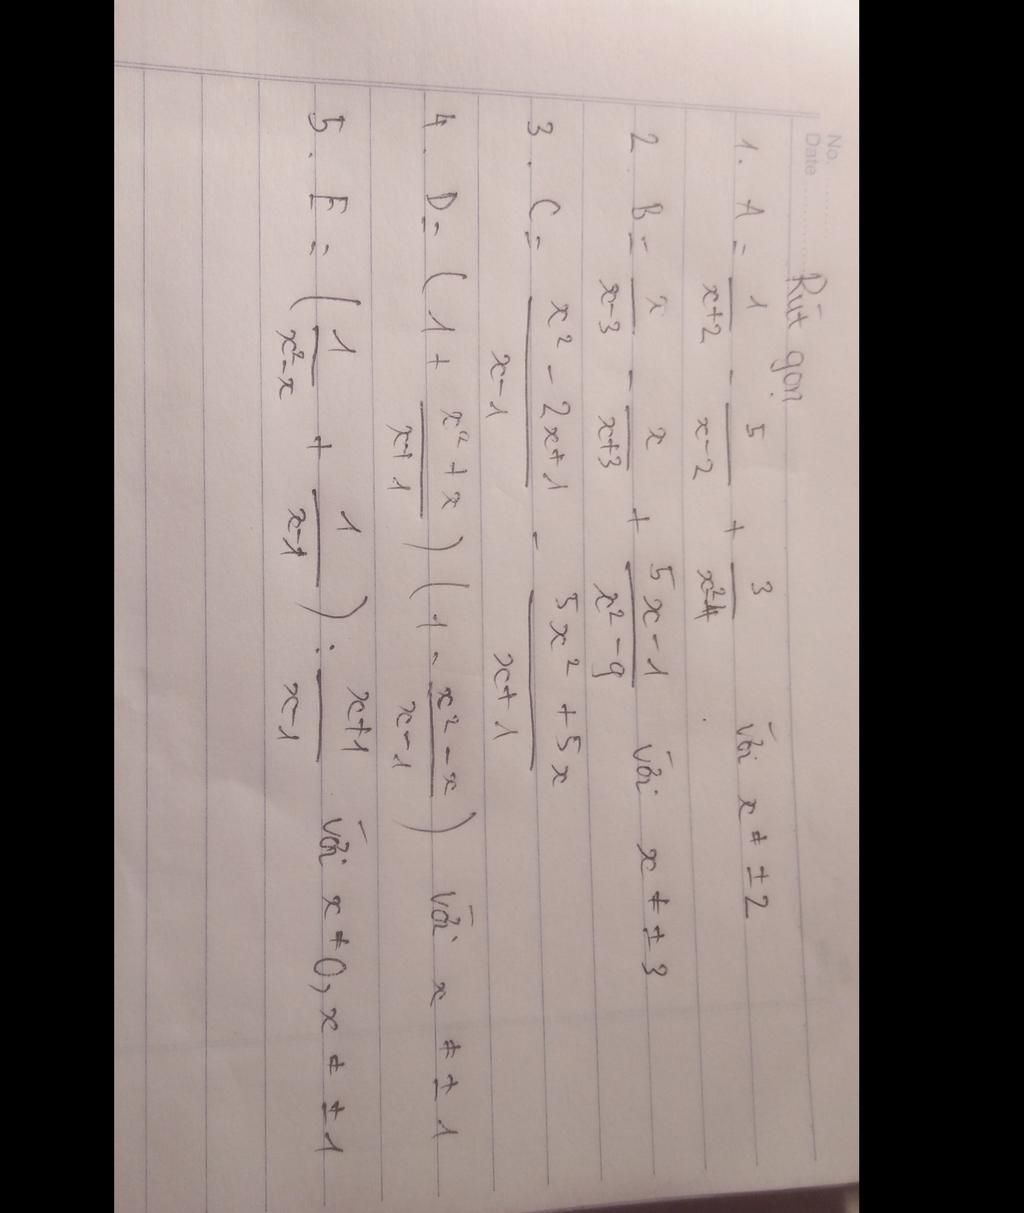 No.
Date
Rút gọn
1. A = 1/(x+2) - 5/(x-2) + 3/(x²-4) Với x ≠ ±2
2. B = x/(x-3) - x/(x+3) + (5x-1)/(x²-9) Với x ≠ ±3
3. C = (x² - 2x+1)/(x-1) - (5x² + 5x)/(x+1)
4. D = (1 + (x²+x)/(x+1)) (1 - (x²-x)/(x-1)) Với x ≠ ±1
5. E = (1/(x²-x) + 1/(x-1)) : (x+1)/(x-1) Với x ≠ 0, x ≠ ±1